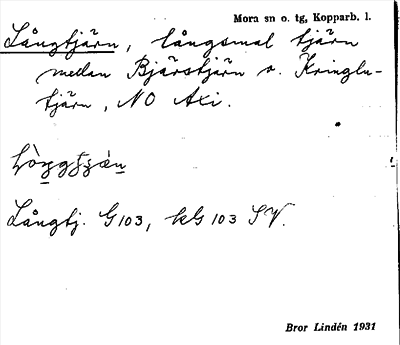 Mora sn o. tg, Kopparb. l.
Långtjärn, långsmal tjärn
mellan Bjärstjärn o. Kringlu-
tjärn, NO Axi.
Långtj. G103, kG 103 SV.
Bror Lindén 1931